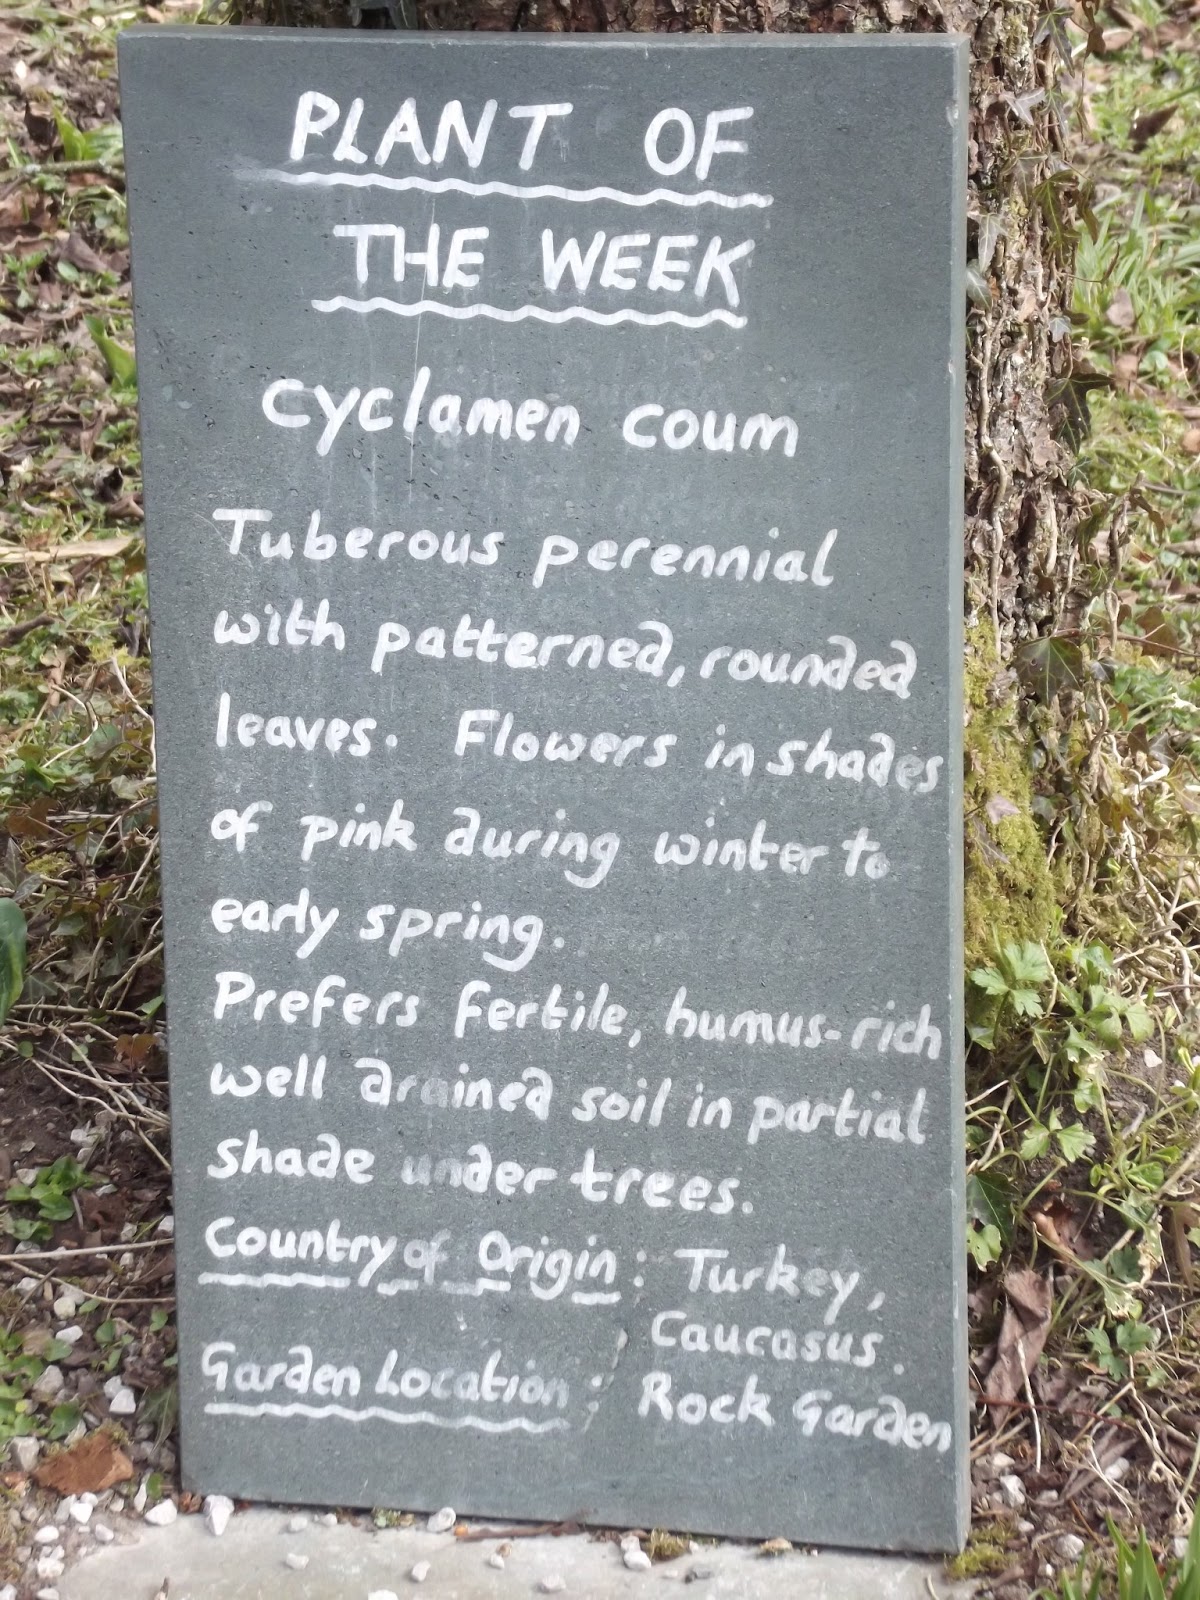 PLANT OF
THE WEEK
Cyclamen coum
Tuberous perennial
with patterned, rounded
leaves. Flowers in shades
of pink during winter to
early spring.
Prefers fertile, humus-rich
well drained soil in partial
shade under trees.
Country of Origin: Turkey,
Caucasus.
Garden Location: Rock Garden